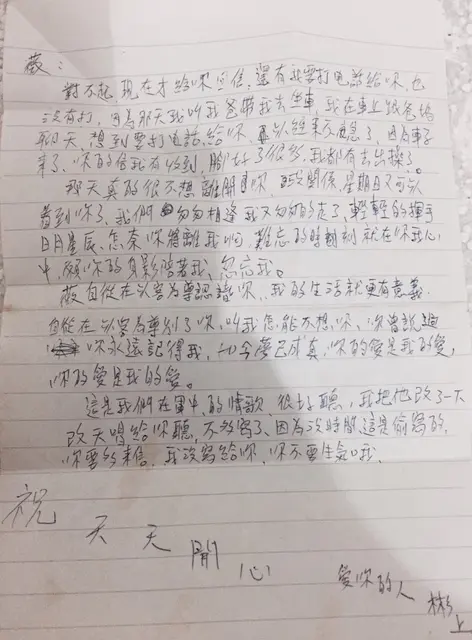 薇：
對不起現在才給你回信，還有我要打电話給你也
沒有打，因為那天我叫我爸帶我去坐車，我在車上跟爸媽
聊天，想到要打电話給你，可以結果來不及了，因為車子
來了，你的信我有收到，腳好了很多，我都有去出操了。
那天真的很不想離開你，沒關係，星期日又可以
看到你了，我們匆匆相逢我又匆匆的走了，輕輕的揮手
日月星辰，怎奈你將離我，難忘的時刻就在你我心
中，願你的身影陪著我，忘我。
薇自從在以客為尊認識你，我的生活就更有意義
自從在以客為尊別了你，叫我怎能不想你，你曾說過
你永遠記得我，如今夢已成真，你的愛是我的愛，
你的愛是我的愛。
這是我們在軍中的情歌，很好聽，我把他改了一下
改天唱給你聽，不多寫了，因為沒時間，這是偷寫的，
你要多來信，我沒寫給你，你不要生氣哦，
祝
天天開心
愛你的人 彬上